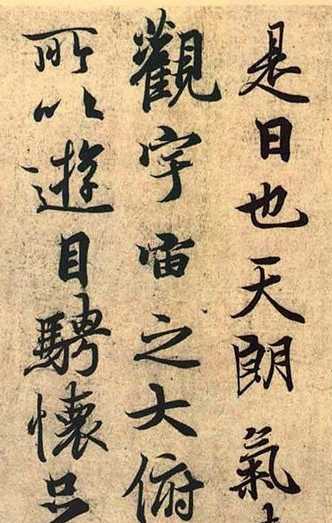 是日也天朗氣
觀宇宙之大俯
所以遊目騁懷